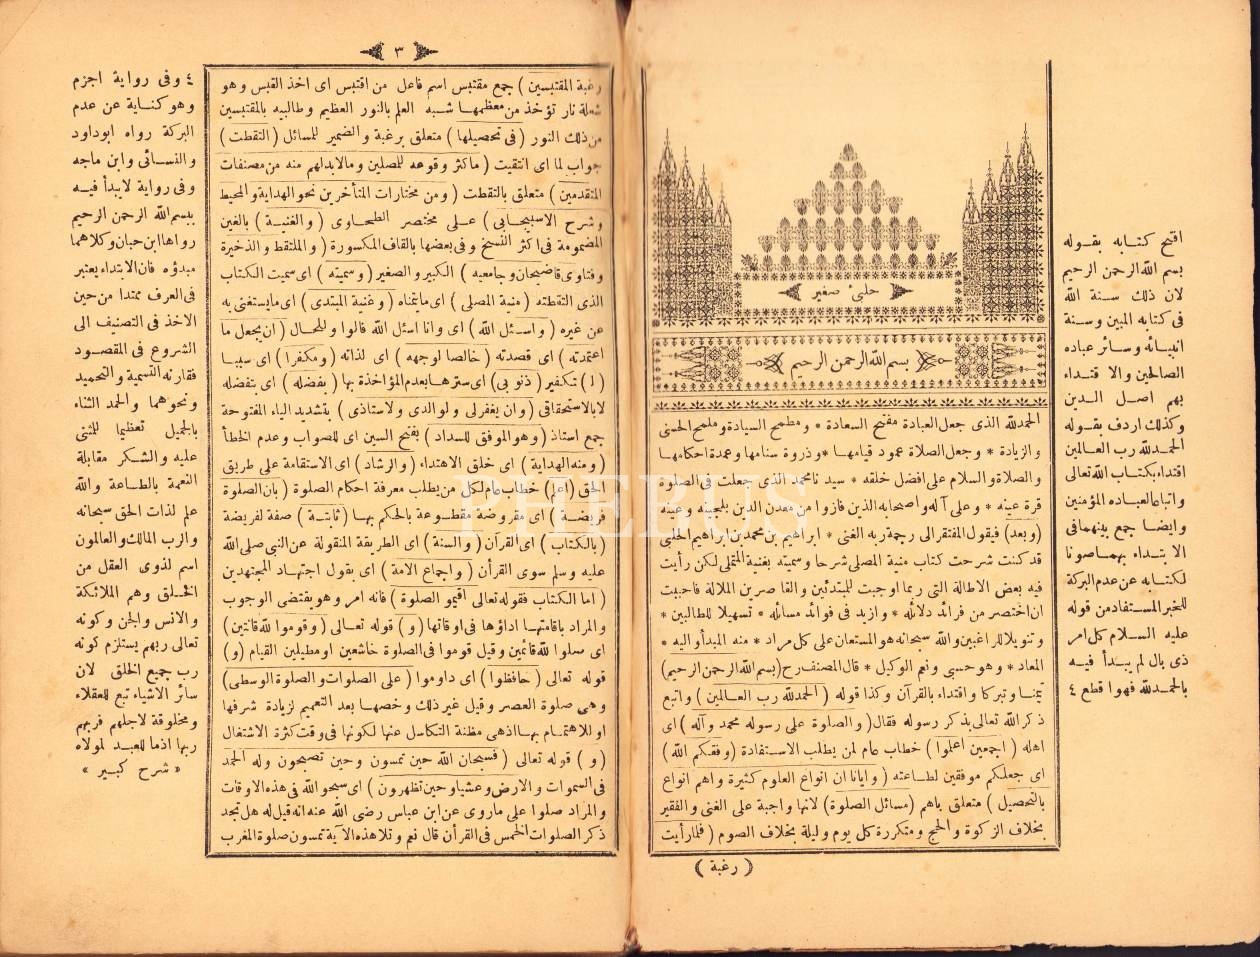 حلبئ صغير
بسم الله الرحمن الرحيم
الحمدلله الذى جعل العبادة مفتح السعادة * ومطمح السيادة وملمح الحسنى
والزيادة * وجعل الصلاة عمود قيامها * وذروة سنامها وعمدة احكامها
والصلاة والسلام على افضل خلقه * سيدنا محمد الذى جعلت فى الصلوة
قرة عينه * وعلى آله واصحابه الذين فازوا من معدن الدين بلجينه وعينه
(وبعد) فيقول المفتقر الى رحمة ربه الغنى * ابراهيم بن محمد بن ابراهيم الحلبى
قد كنت شرحت كتاب منية المصلى شرحا وسميته بغنية المتملى لكن رأيت
فيه بعض الاطالة التى ربما اوجبت للمبتدئين والقاصرين الملالة فاحببت
ان اختصر من فرائد دلائله * وازيد فى فوائد مسائله * تسهيلا للطالبين *
وتنويلا للراغبين والله سبحانه هو المستعان على كل مراد * منه المبدأ واليه *
المعاد * وهو حسبى ونعم الوكيل * قال المصنف رح (بسم الله الرحمن الرحيم)
تيمنا وتبركا واقتداء بالقرآن وكذا قوله (الحمدلله رب العالمين) واتبع
ذكر الله تعالى بذكر رسوله فقال (والصلوة على رسوله محمد وآله) اى
اهله (اجمعين اعلموا) خطاب عام لمن يطلب الاستفادة (وفقكم الله)
اى جعلكم موفقين لطاعته (وايانا ان انواع العلوم كثيرة واهم انواع
بالتحصيل) متعلق باهم (مسائل الصلوة) لانها واجبة على الغنى والفقير
بخلاف الزكوة والحج ومتكررة كل يوم وليلة بخلاف الصوم (فلما رأيت
(رغبة)
افتح كتابه بقوله
بسم الله الرحمن الرحيم
لان ذلك سنة الله
فى كتابه المبين وسنة
انبيائه وسائر عباده
الصالحين والاقتداء
بهم اصل الدين
وكذلك اردف بقوله
الحمدلله رب العالمين
اقتداء بكتاب الله تعالى
واتباعا لعباده المؤمنين
وايضا جمع بينهما فى
الابتداء بهما صونا
لكتابه عن عدم البركة
للخبر المستفاد من قوله
عليه السلام كل امر
ذى بال لم يبدأ فيه
بالحمدلله فهو اقطع ٤
٣
رغبة المقتبسين) جمع مقتبس اسم فاعل من اقتبس اى اخذ القبس وهو
شعلة نار تؤخذ من معظمها شبه العلم بالنور العظيم وطالبيه بالمقتبسين
من ذلك النور (فى تحصيلها) متعلق برغبة والضمير للمسائل (التقطت)
جواب لما اى انتقيت (ما كثر وقوعه للمصلين وما لابد لهم منه من مصنفات
المتقدمين) متعلق بالتقطت (ومن مختارات المتأخرين نحو الهداية والمحيط
وشرح الاسبيجابى) على مختصر الطحاوى (والغنية) بالغين
المضمومة فى اكثر النسخ وفى بعضها بالقاف المكسورة (والملتقط والذخيرة
وفتاوى قاضيخان وجامعيه) الكبير والصغير (وسميته) اى سميت الكتاب
الذى التقطته (منية المصلى) اى ما يتمناه (وغنية المبتدى) اى ما يستغنى به
عن غيره (واسئل الله) اى وانا اسئل الله قالوا وللحال (ان يجعل ما
اعتمدته) اى قصدته (خالصا لوجهه) اى لذاته (ومكفرا) اى سببا
(ل) تكفير (ذنوبى) اى سترها بعدم المؤاخذة بها (بفضله) اى بتفضله
لا بالاستحقاق (وان يغفر لى ولوالدى ولاستاذى) بتشديد الياء المفتوحة
جمع استاذ (وهو الموفق للسداد) بفتح السين اى للصواب وعدم الخطأ
(ومنه الهداية) اى خلق الاهتداء (والرشاد) اى الاستقامة على طريق
الحق (اعلم) خطاب عام لكل من يطلب معرفة احكام الصلوة (بان الصلوة
فريضة) اى مفروضة مقطوعة بالحكم بها (ثابتة) صفة لفريضة
(بالكتاب) اى القرآن (والسنة) اى الطريقة المنقولة عن النبى صلى الله
عليه وسلم سوى القرأن (واجماع الامة) اى بقول اجتهاد المجتهدين
(اما الكتاب فقوله تعالى اقيموا الصلوة) فانه امر وهو يقتضى الوجوب
والمراد باقامتها اداؤها فى اوقاتها (و) قوله تعالى (وقوموا لله قانتين)
اى صلوا لله قائمين وقيل قوموا فى الصلوة خاشعين او مطيلين القيام (و)
قوله تعالى (حافظوا) اى داوموا (على الصلوات والصلوة الوسطى)
وهى صلوة العصر وقيل غير ذلك وخصها بعد التعميم لزيادة شرفها
او للاهتمام بها اذ هى مظنة التكاسل عنها لكونها فى وقت كثرة الاشتغال
(و) قوله تعالى (فسبحان الله حين تمسون وحين تصبحون وله الحمد
فى السموات والارض وعشيا وحين تظهرون) اى سبحوا الله فى هذه الاوقات
والمراد صلوا على ما روى عن ابن عباس رضى الله عنه انه قيل له هل تجد
ذكر الصلوات الخمس فى القرأن قال نعم وتلا هذه الآية تمسون صلوة المغرب
٤ وفى رواية اجزم
وهو كناية عن عدم
البركة رواه ابوداود
والنسائى وابن ماجه
وفى رواية لايبدأ فيه
ببسم الله الرحمن الرحيم
رواها ابن حبان وكلاهما
مبدؤه فان الابتداء يعتبر
فى العرف ممتدا من حين
الاخذ فى التصنيف الى
الشروع فى المقصود
فقارنته التسمية والتحميد
ونحوهما والحمد الثناء
بالجميل تعظيما للمثنى
عليه والشكر مقابلة
النعمة بالطاعة والله
علم لذات الحق سبحانه
والرب المالك والعالمون
اسم لذوى العقل من
الخلق وهم الملائكة
والانس والجن وكونه
تعالى ربهم يستلزم كونه
رب جميع الخلق لان
سائر الاشياء تبع للعقلاء
ومخلوقة لاجلهم فربهم
ربها اذ ما للعبد لمولاه
« شرح كبير »
PHEBUS